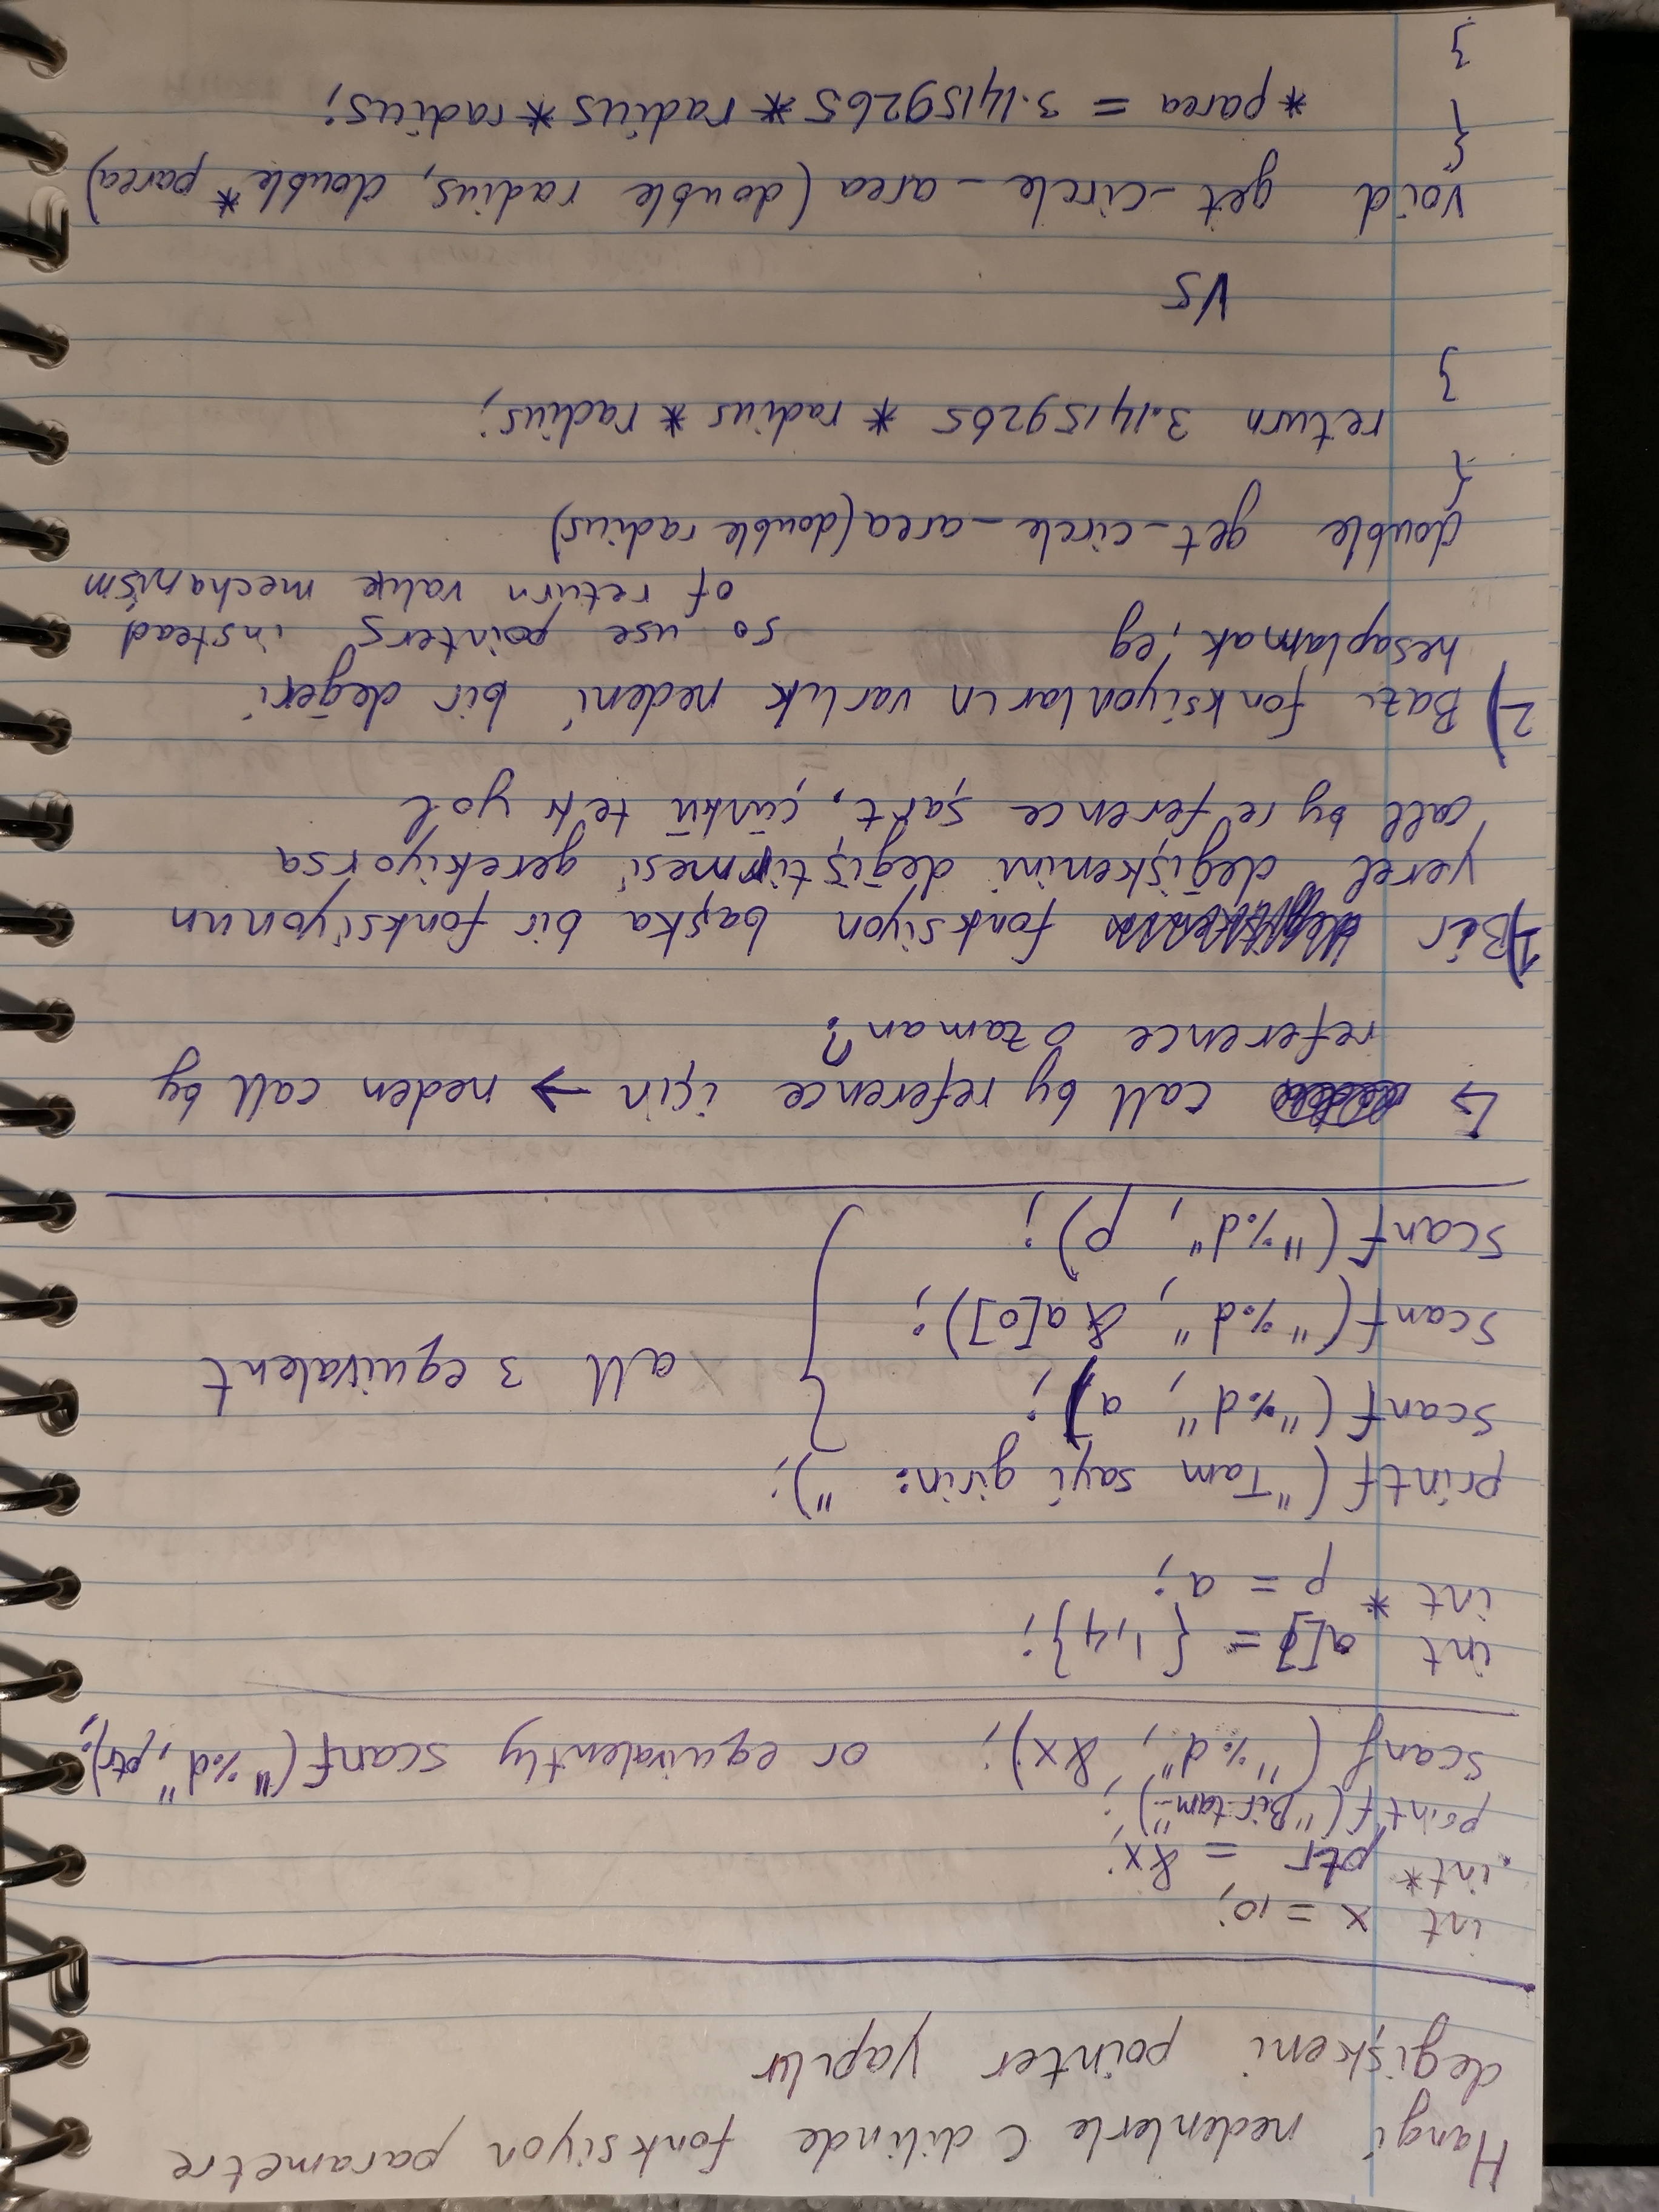 Hangi nedenlerle C dilinde fonksiyon parametre
değişkeni pointer yapılır
int x = 10;
int* ptr = &x;
printf("Bir tam--");
scanf("%d", &x); or equivalently scanf("%d", ptr);
int a[] = {1,4};
int * p = a;
printf("Tam sayi girin: ");
scanf("%d", a);
scanf("%d", &a[0]);
scanf("%d", p);
all 3 equivalent
↳ call by reference için → neden call by
reference o zaman?
1) Bir fonksiyon başka bir fonksiyonun
yerel değişkenini değiştirmesi gerekiyorsa
call by reference şart, çünkü tek yol
2) Bazı fonksiyonların varlık nedeni bir değeri
hesaplamak, eg so use pointers instead
of return value mechanism
double get_circle_area(double radius)
{
return 3.14159265 * radius * radius;
}
Vs
void get_circle_area (double radius, double* parea)
{
*parea = 3.14159265 * radius * radius;
}